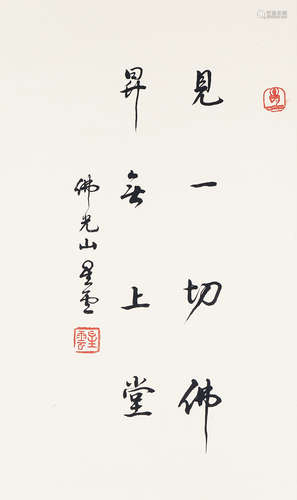 見一切佛
昇無上堂
佛光山星雲
星雲